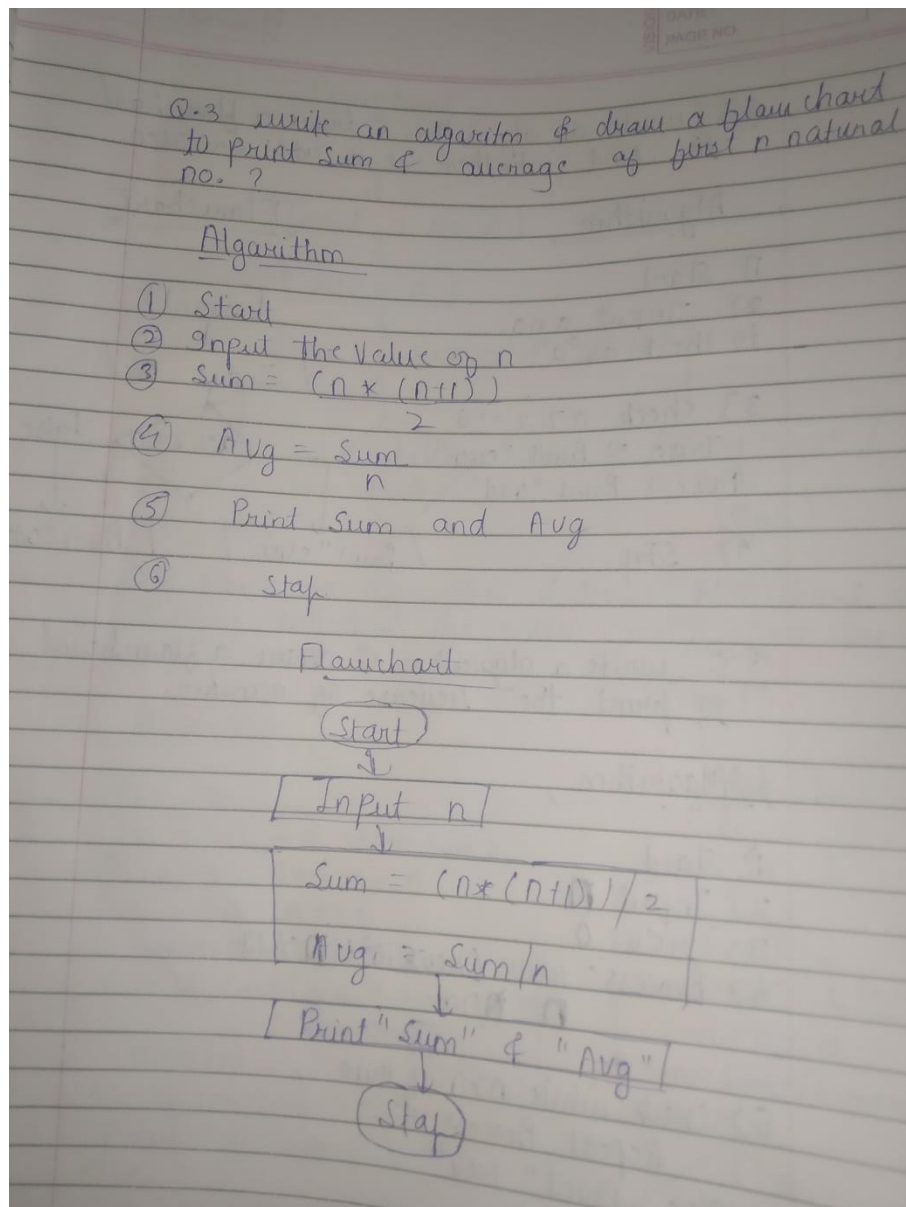 DATE
PAGE NO.
Q.3 write an algaritm & draw a flow chart
to print sum & average of first n natural
no. ?
Algorithm
① Start
② Input the value of n
③ Sum = (n * (n+1))
2
④ Avg = Sum
n
⑤ Print Sum and Avg
⑥ Stop
Flowchart
Start
Input n
Sum = (n*(n+1))/2
Avg = Sum/n
Print "Sum" & "Avg"
Stop